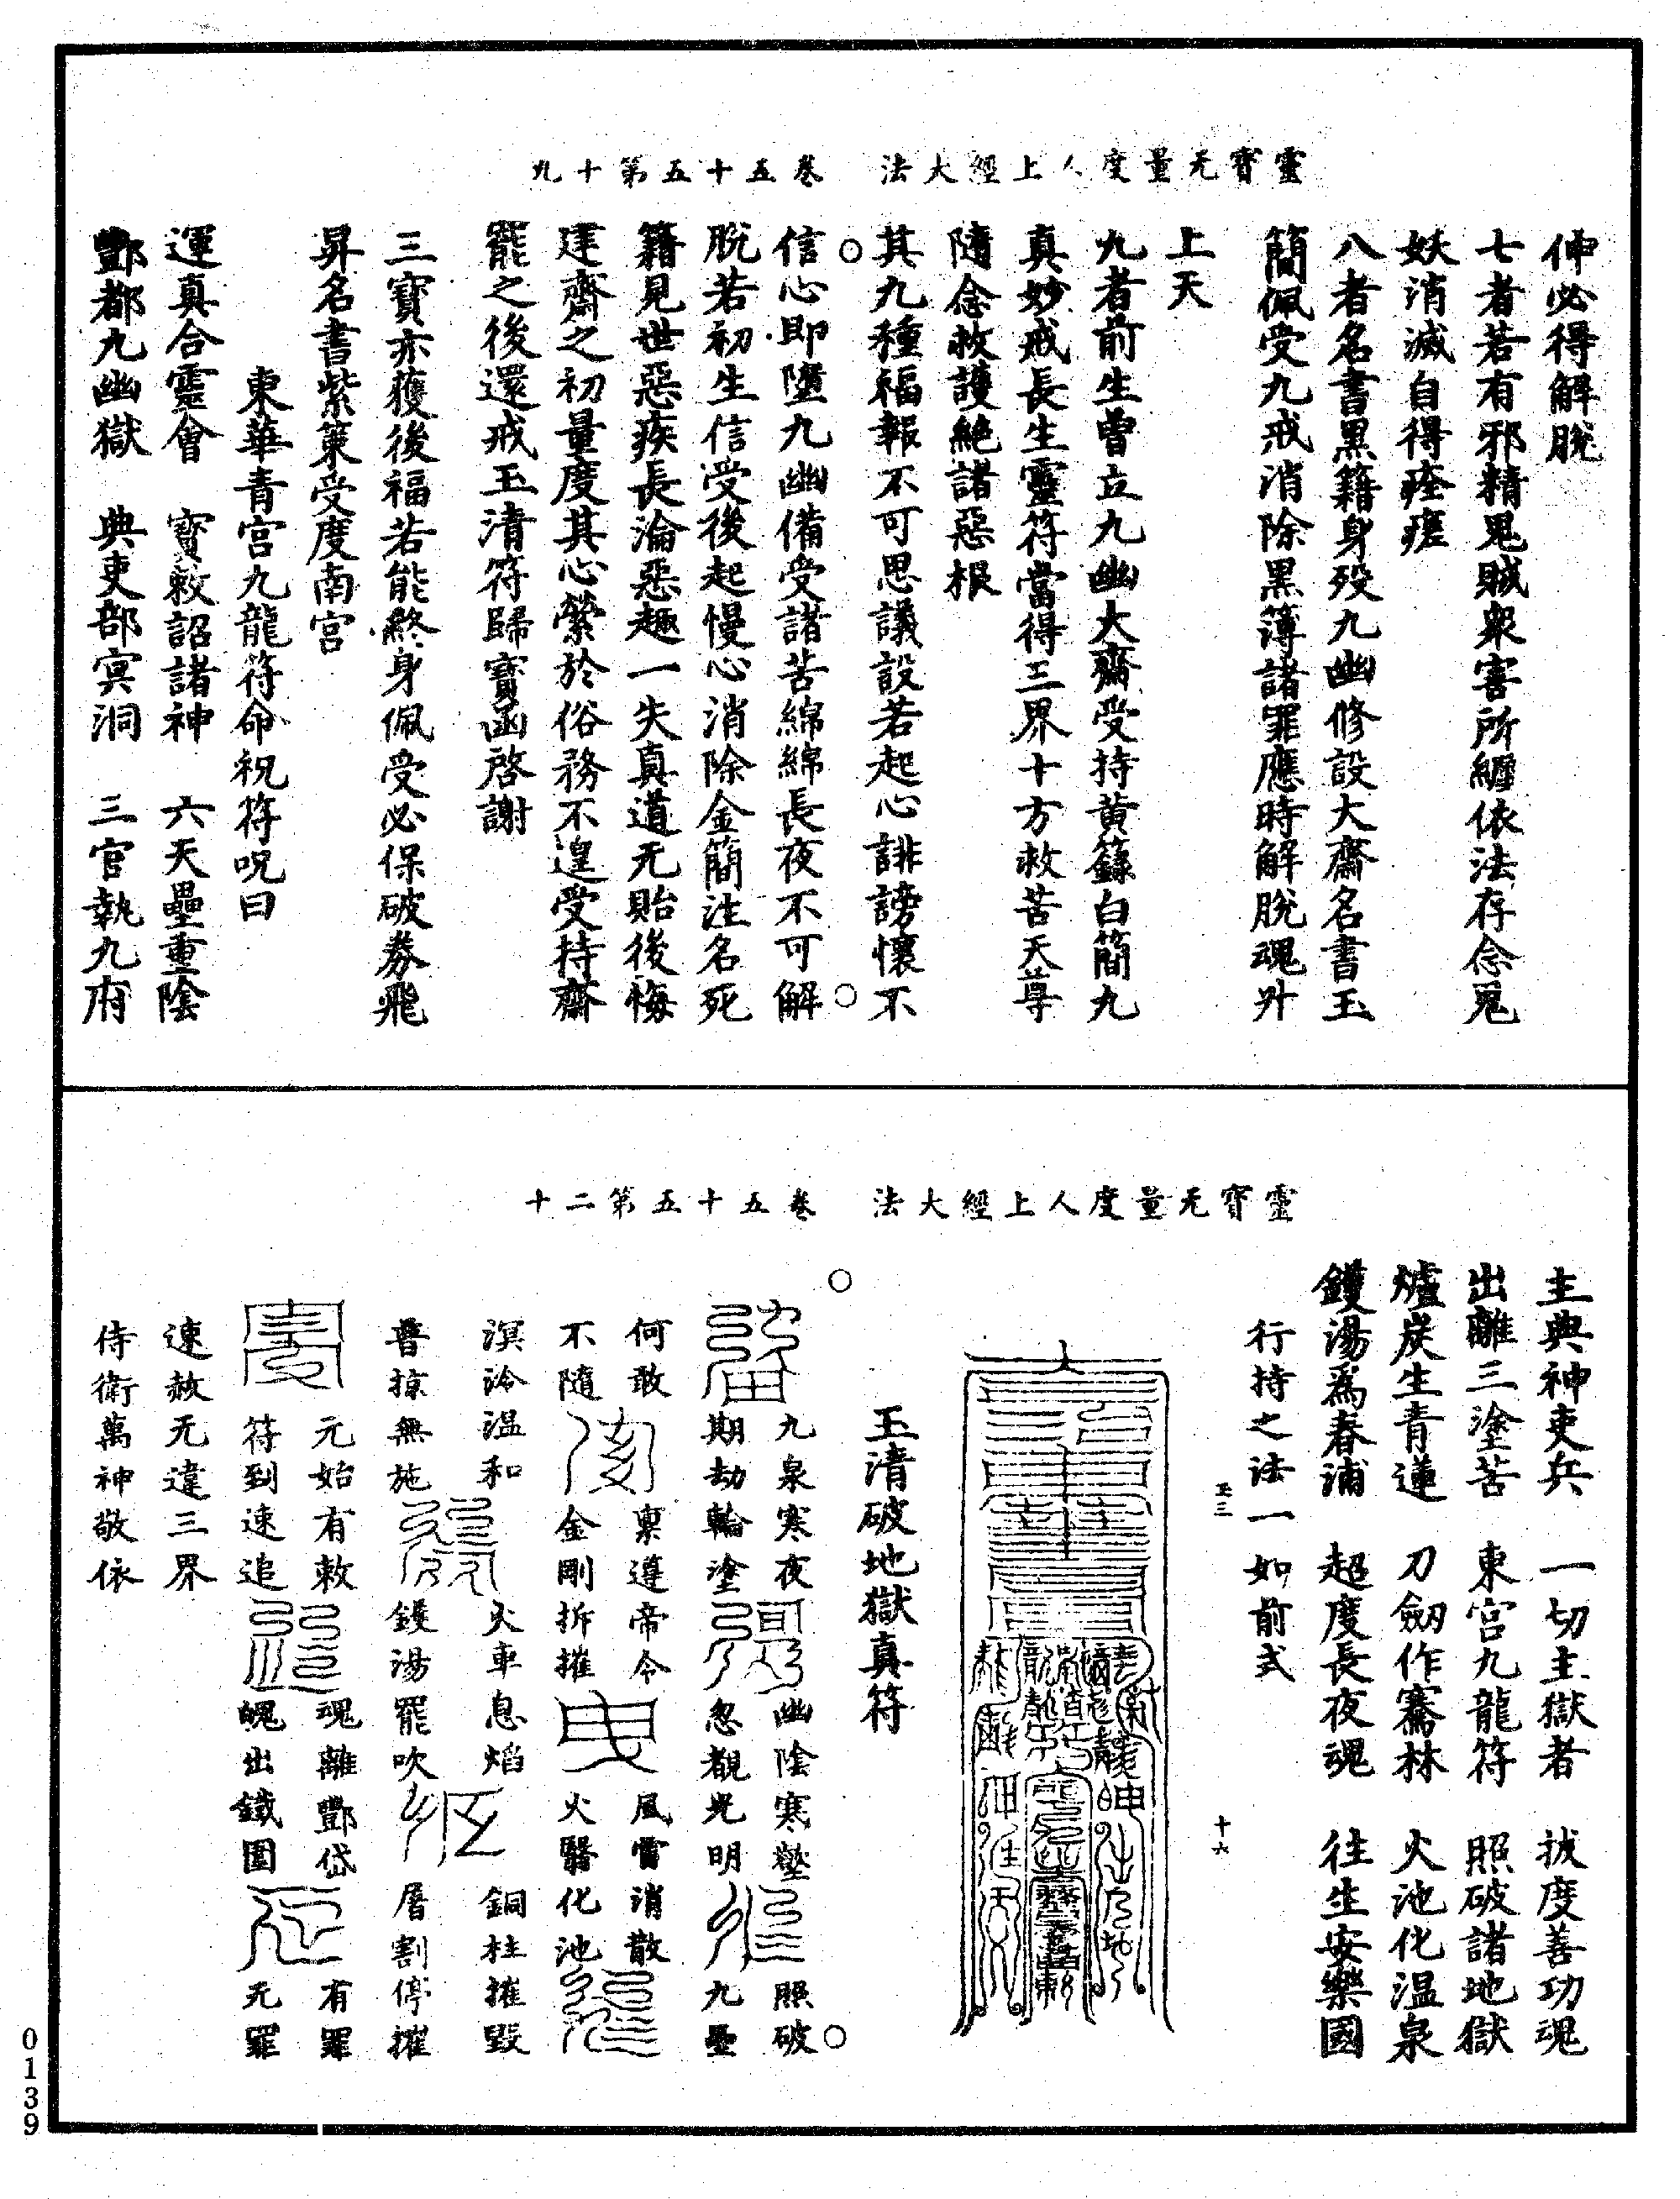 靈寶无量度人上經大法　卷五十五第十九
伸必得解脫
七者若有邪精鬼賊衆害所纏依法存念冤
妖消滅自得痊瘥
八者名書黑籍身歿九幽修設大齋名書玉
簡佩受九戒消除黑簿諸罪應時解脫魂升
上天
九者前生曾立九幽大齋受持黄籙白簡九
真妙戒長生靈符當得三界十方救苦天尊
隨念救護絕諸惡根
其九種福報不可思議設若起心誹謗懷不
信心即墮九幽備受諸苦綿綿長夜不可解
脫若初生信受後起慢心消除金簡注名死
籍見世惡疾長淪惡趣一失真道无貽後悔
建齋之初量度其心縈於俗務不遑受持齋
罷之後還戒玉清符歸寶函啓謝
三寶亦獲後福若能終身佩受必保破券飛
昇名書紫策受度南宫
東華青宫九龍符命祝符呪曰
運真合靈會　寶敕詔諸神　六天壘重陰
酆都九幽獄　典吏部冥洞　三官執九府
靈寶无量度人上經大法　卷五十五第二十
主典神吏兵　一切主獄者　拔度善功魂
出離三塗苦　東宫九龍符　照破諸地獄
爐炭生青蓮　刀劒作騫林　火池化温泉
鑊湯爲春浦　超度長夜魂　往生安樂國
行持之法一如前式
玉清破地獄真符
九泉寒夜　幽陰寒壑　照破
期劫輪塗　忽覩光明　九壘
何敢　禀遵帝令　風雷消散
不隨　金剛拆摧　火醫化池
溟泠温和　火車息焰　銅柱摧毁
普掠無施　鑊湯罷吹　屠割停摧
元始有敕　魂離酆岱　有罪
符到速追　魄出鐵圍　无罪
速赦无違三界
侍衛萬神敬依
0139